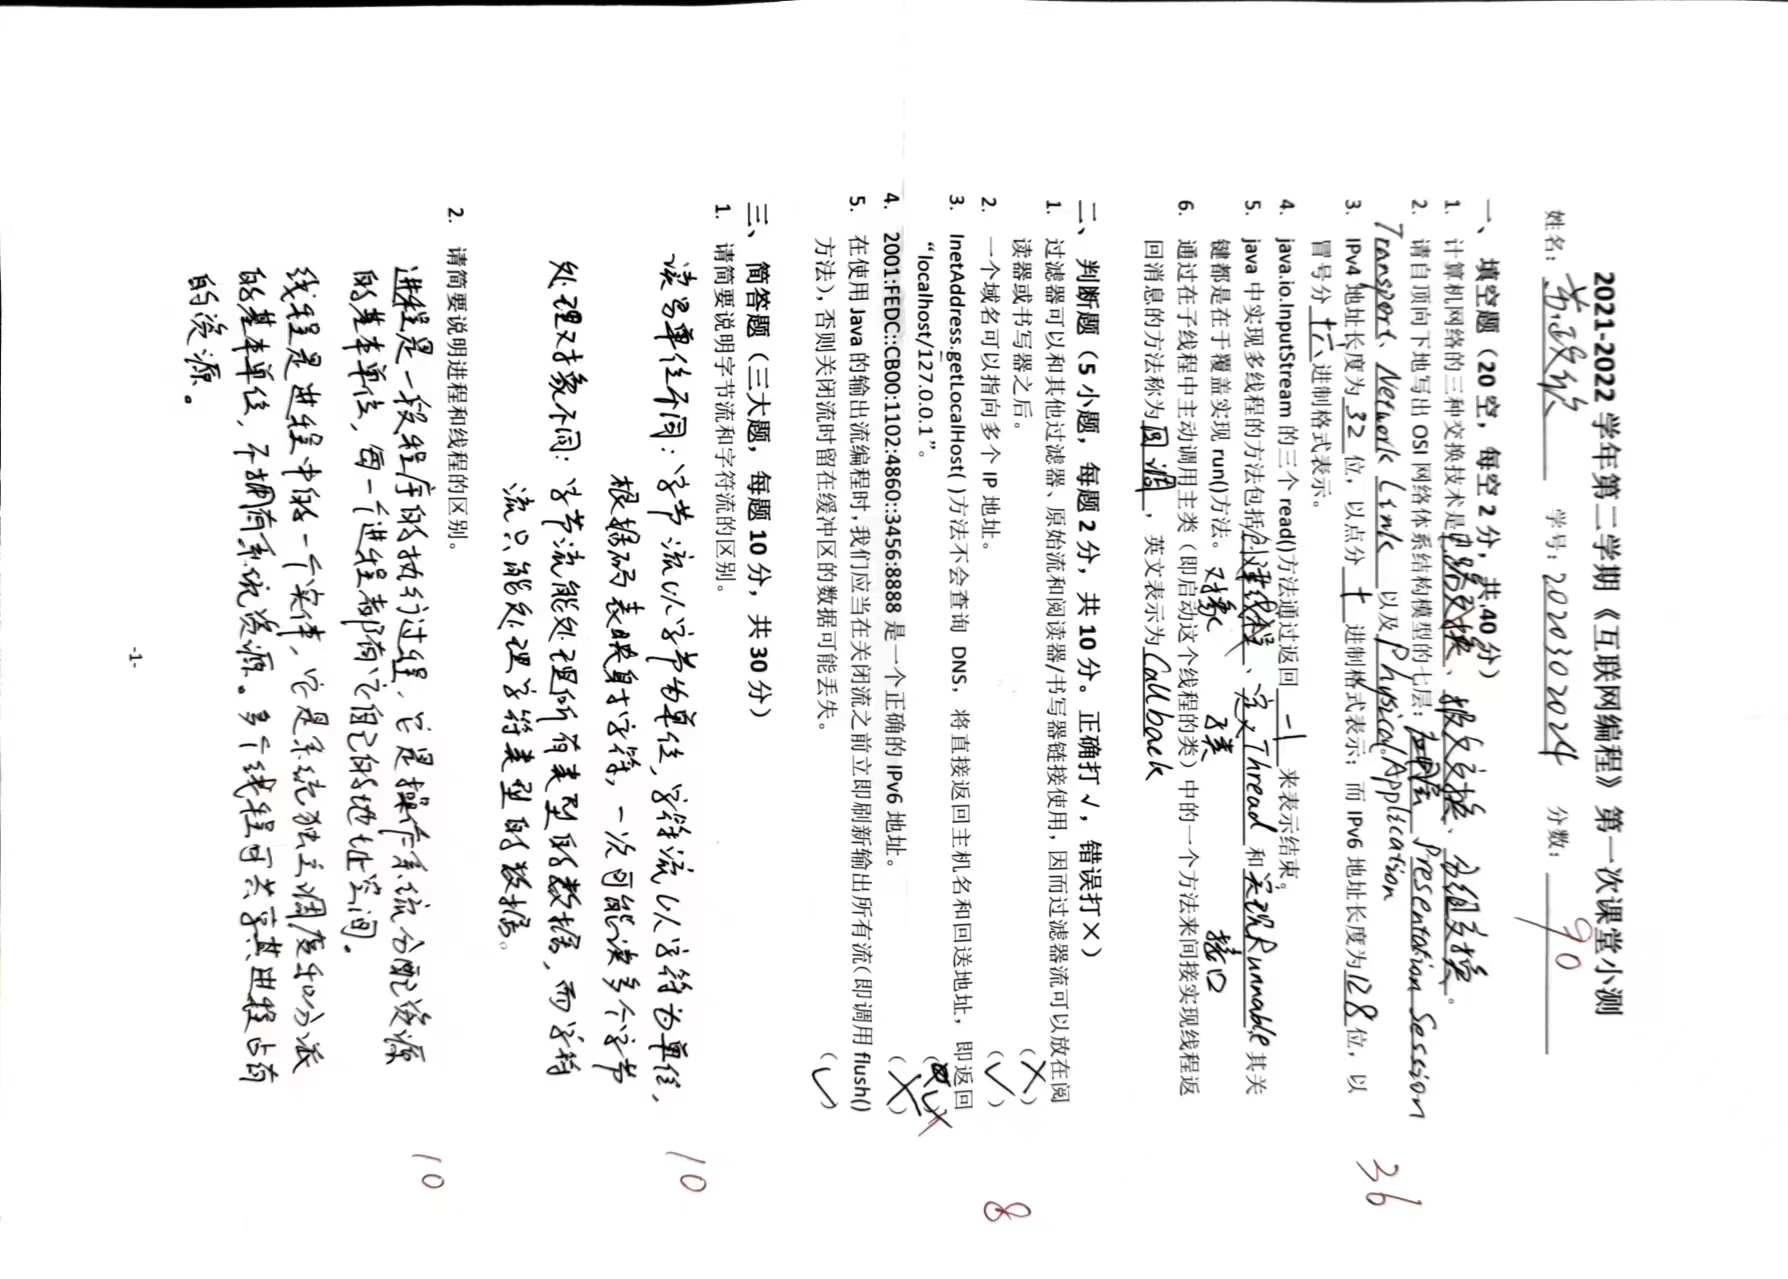 2021-2022 学年第二学期《互联网编程》第一次课堂小测
姓名： 学号：202030202024 分数： 90
一、填空题（20 空，每空 2 分，共 40 分）
1. 计算机网络的三种交换技术是电路交换、报文交换、分组交换。
2. 请自顶向下地写出 OSI 网络体系结构模型的七层： Presentation Session
Transport、Network Link 以及 Physical。Application
3. IPv4 地址长度为 32 位，以点分 十 进制格式表示；而 IPv6 地址长度为 128 位，以
冒号分 十六 进制格式表示。
4. java.io.InputStream 的三个 read()方法通过返回 -1 来表示结束。
5. java 中实现多线程的方法包括创建线程、定义Thread 和实现Runnable 其关
键都是在于覆盖实现 run()方法。 对象 子类 接口
6. 通过在子线程中主动调用主类（即启动这个线程的类）中的一个方法来间接实现线程返
回消息的方法称为 回调 ，英文表示为 Callback
36
二、判断题（5 小题，每题 2 分，共 10 分。正确打 √，错误打 ×）
1. 过滤器可以和其他过滤器、原始流和阅读器/书写器链接使用，因而过滤器流可以放在阅
读器或书写器之后。 （×）
2. 一个域名可以指向多个 IP 地址。 （√）
3. InetAddress.getLocalHost( )方法不会查询 DNS，将直接返回主机名和回送地址，即返回
“localhost/127.0.0.1”。 （√）
4. 2001:FEDC::CB00:1102:4860::3456:8888 是一个正确的 IPv6 地址。 （×）
5. 在使用 Java 的输出流编程时，我们应当在关闭流之前立即刷新输出所有流（即调用 flush()
方法），否则关闭流时留在缓冲区的数据可能丢失。 （√）
8
三、简答题（三大题，每题 10 分，共 30 分）
1. 请简要说明字节流和字符流的区别。
读写单位不同：字节流以字节为单位，字符流以字符为单位，
根据码表映射字符，一次可能读多个字节
处理对象不同：字节流能处理所有类型的数据，而字符
流只能处理字符类型的数据。
10
2. 请简要说明进程和线程的区别。
进程是一段程序的执行过程，它是操作系统分配资源
的基本单位，每一个进程都有它自己的地址空间。
线程是进程中的一个实体，它是系统独立调度和分派
的基本单位，不拥有系统资源。多个线程可共享其进程占有
的资源。
10
-1-